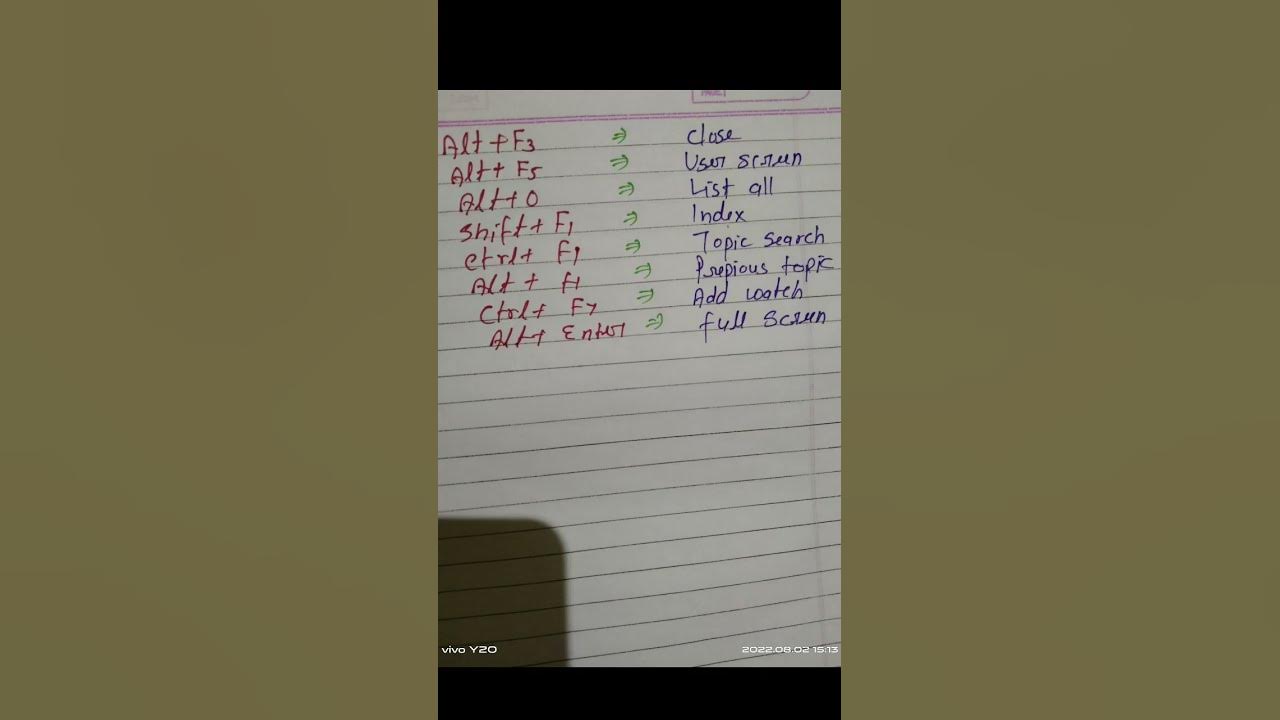 PAGE
Alt + F3 ⇒ Close
Alt + F5 ⇒ User screen
Alt + O ⇒ List all
Shift + F1 ⇒ Index
Ctrl + F1 ⇒ Topic Search
Alt + f1 ⇒ Prepious topic
Ctrl + F7 ⇒ Add watch
Alt + Enter ⇒ full Screen
vivo Y20
2022.08.02 15:13